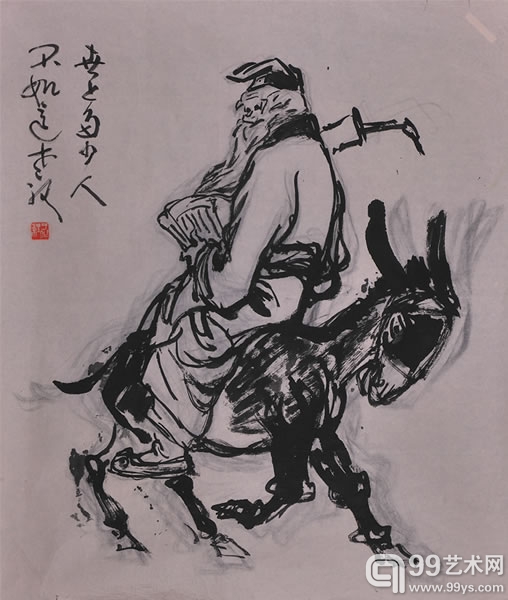 世上多少人
不如這老汉
99艺术网
www.99ys.com